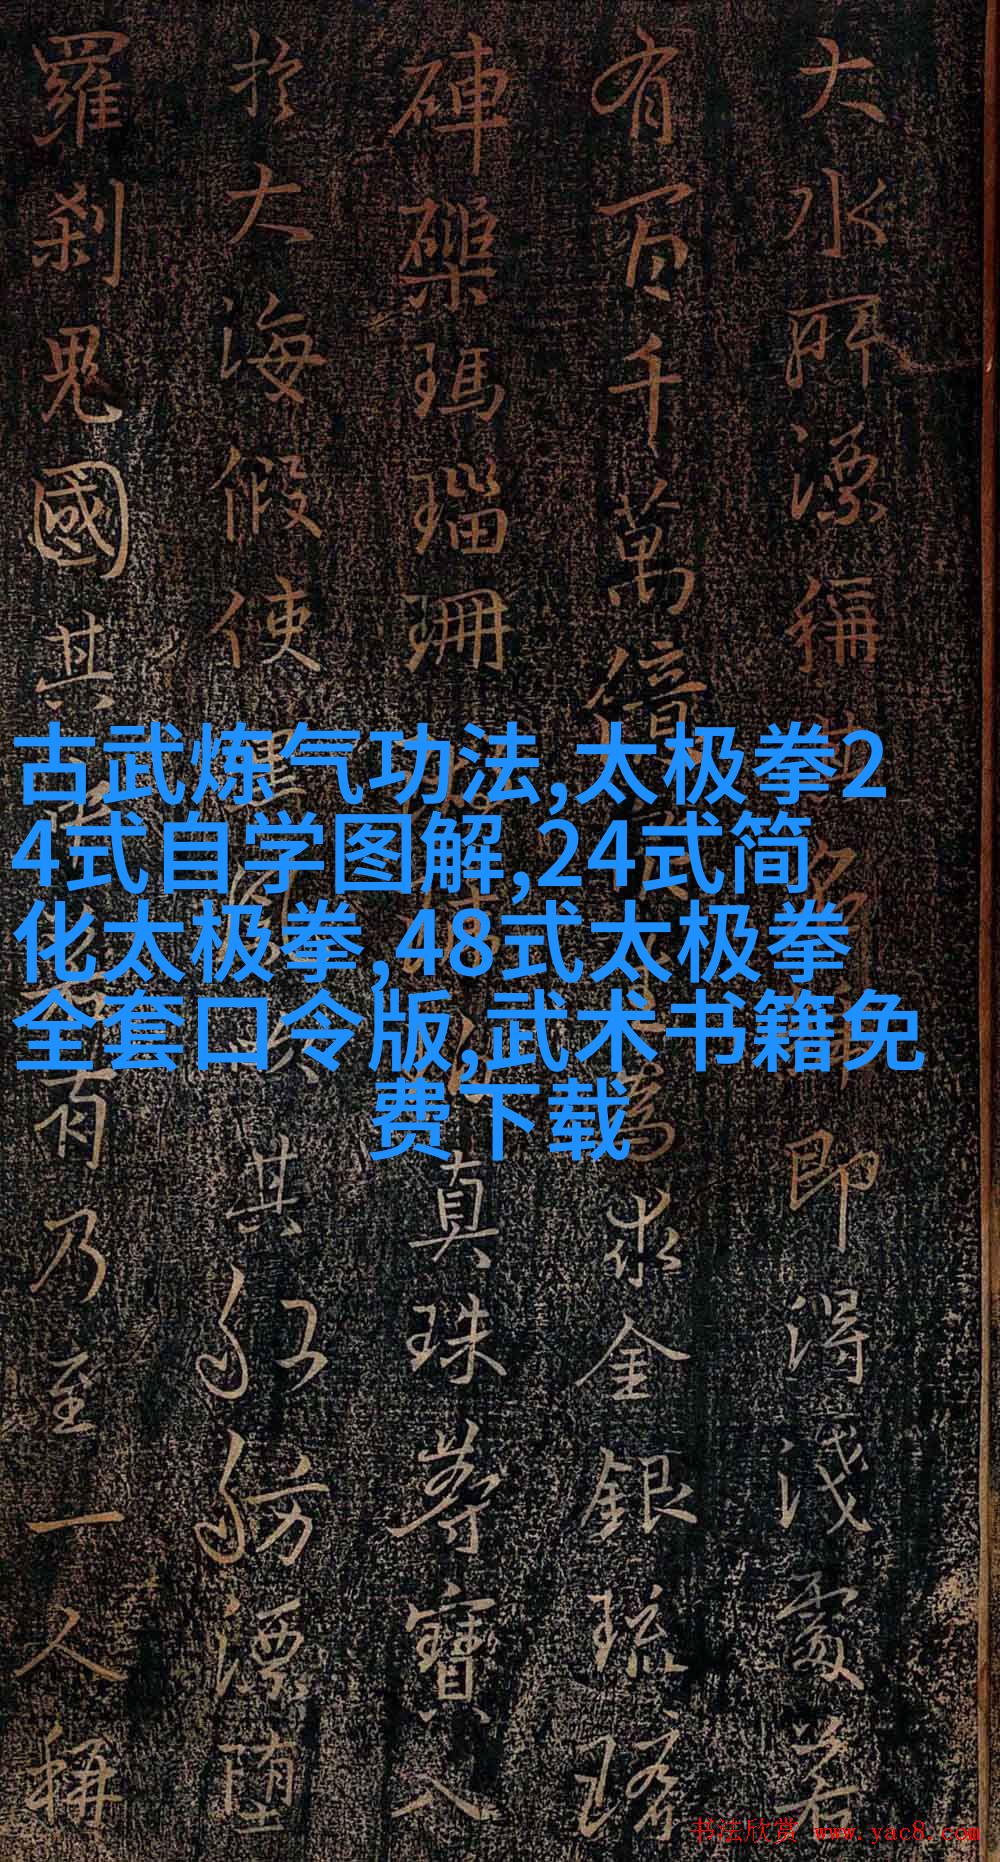 大水所漂稱其名即得淺處若
有百千萬億生為求金銀琉璃
硨磲瑪瑙珊真珠等寶入
於大海假使黑風吹其舩舫漂墮
羅刹鬼國其中若有乃至一人稱
古武炼气功法,太极拳2
4式自学图解,24式简
化太极拳,48式太极拳
全套口令版,武术书籍免
费下载
书法欣赏 www.yac8.com